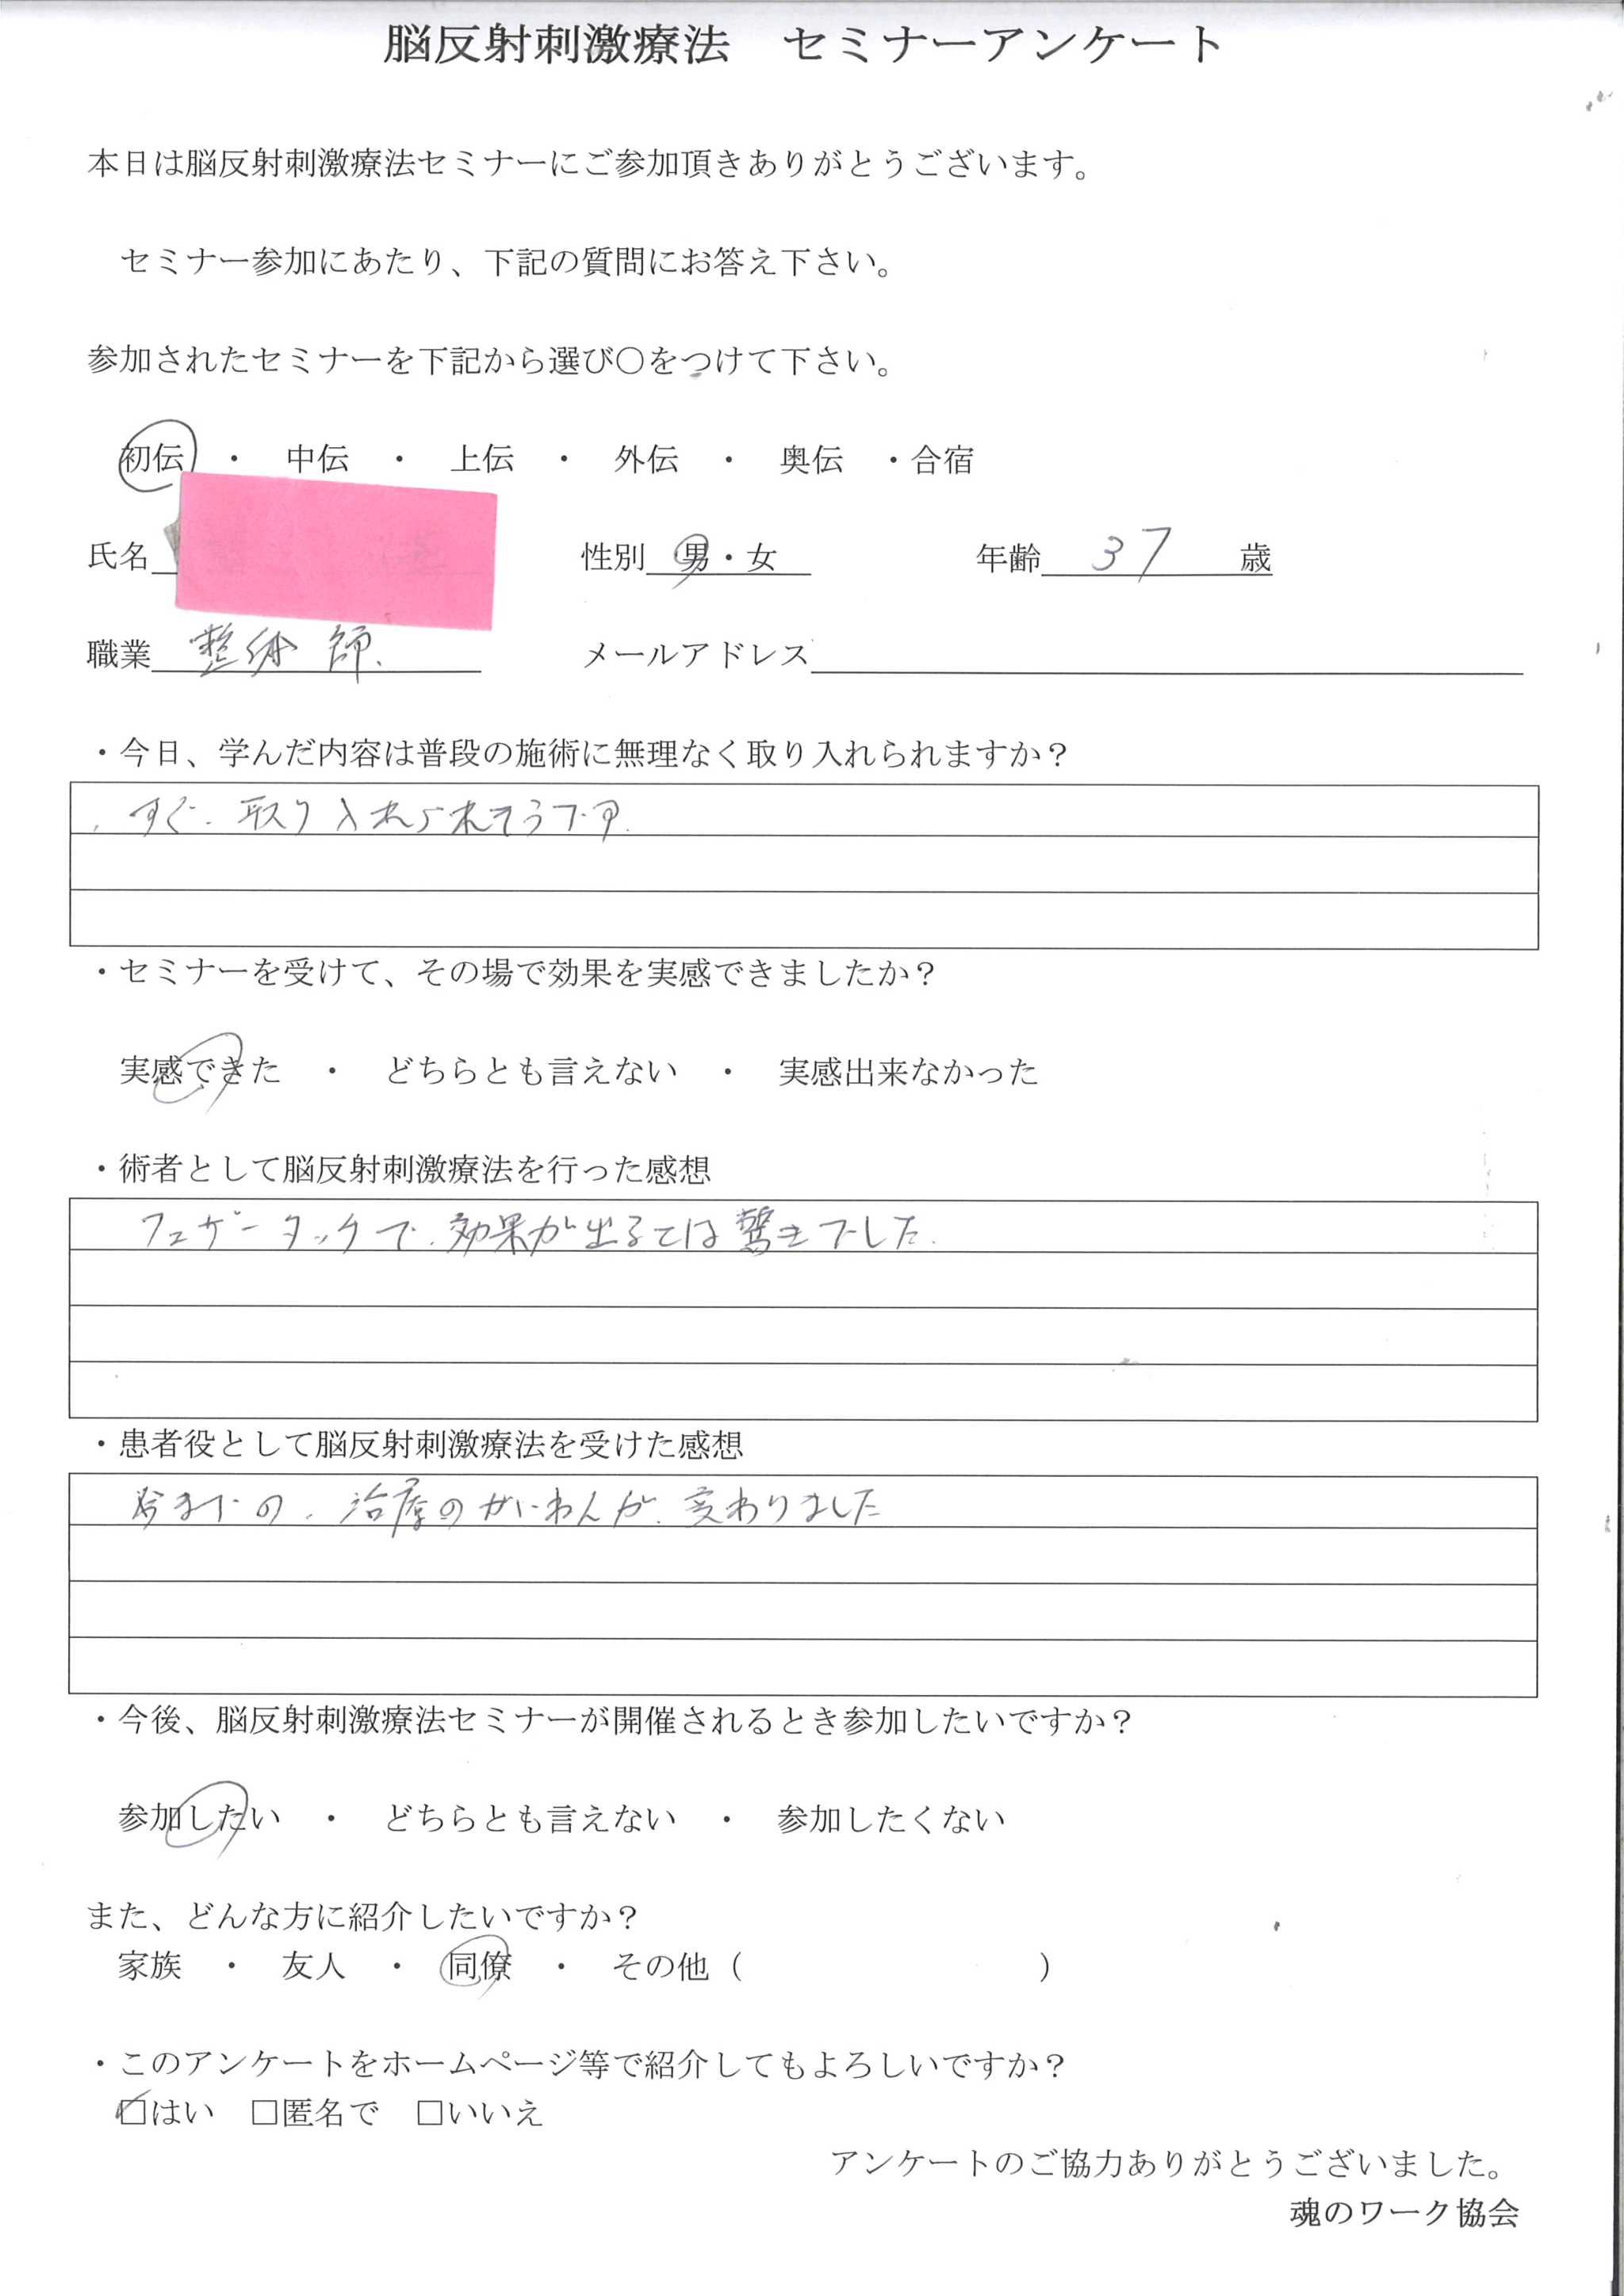 脳反射刺激療法　セミナーアンケート
本日は脳反射刺激療法セミナーにご参加頂きありがとうございます。
セミナー参加にあたり、下記の質問にお答え下さい。
参加されたセミナーを下記から選び〇をつけて下さい。
初伝　・　中伝　・　上伝　・　外伝　・　奥伝　・合宿
氏名　性別　男・女　年齢　37　歳
職業　整体師.　メールアドレス
・今日、学んだ内容は普段の施術に無理なく取り入れられますか？
すぐ、取り入れられそうです.
・セミナーを受けて、その場で効果を実感できましたか？
実感できた　・　どちらとも言えない　・　実感出来なかった
・術者として脳反射刺激療法を行った感想
フェザータッチで、効果が出るとは驚きでした.
・患者役として脳反射刺激療法を受けた感想
今までの、治療のがいねんが、変わりました
・今後、脳反射刺激療法セミナーが開催されるとき参加したいですか？
参加したい　・　どちらとも言えない　・　参加したくない
また、どんな方に紹介したいですか？
家族　・　友人　・　同僚　・　その他（　　　　　　　　　）
・このアンケートをホームページ等で紹介してもよろしいですか？
☑はい　□匿名で　□いいえ
アンケートのご協力ありがとうございました。
魂のワーク協会